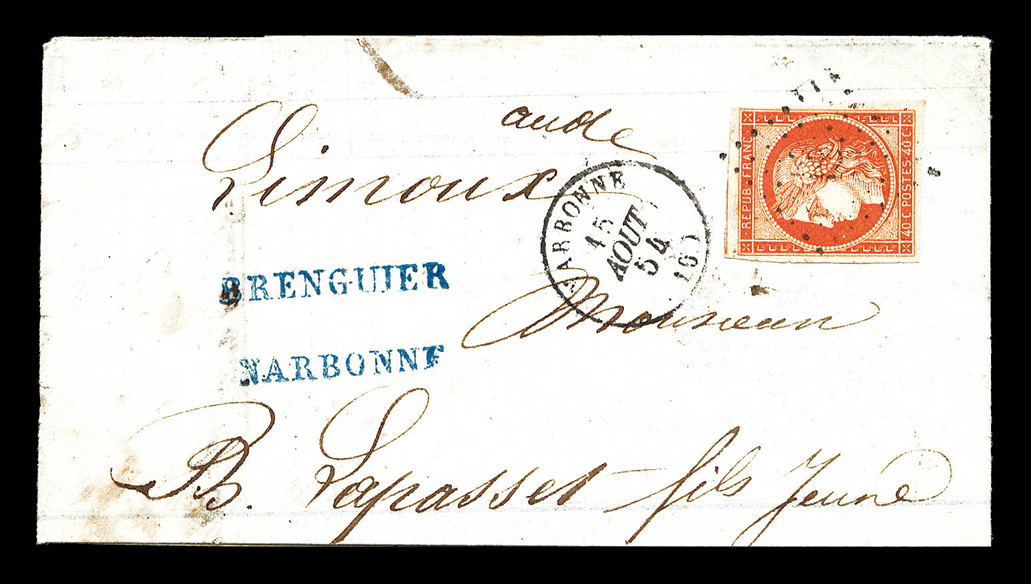 aude
Limoux
NARBONNE
15
AOUT
54
(10)
BRENGUIER
Monsieur
NARBONNE
B. Lapasset fils Jeune
REPUB. FRANC.
40.C.POSTES.40.C